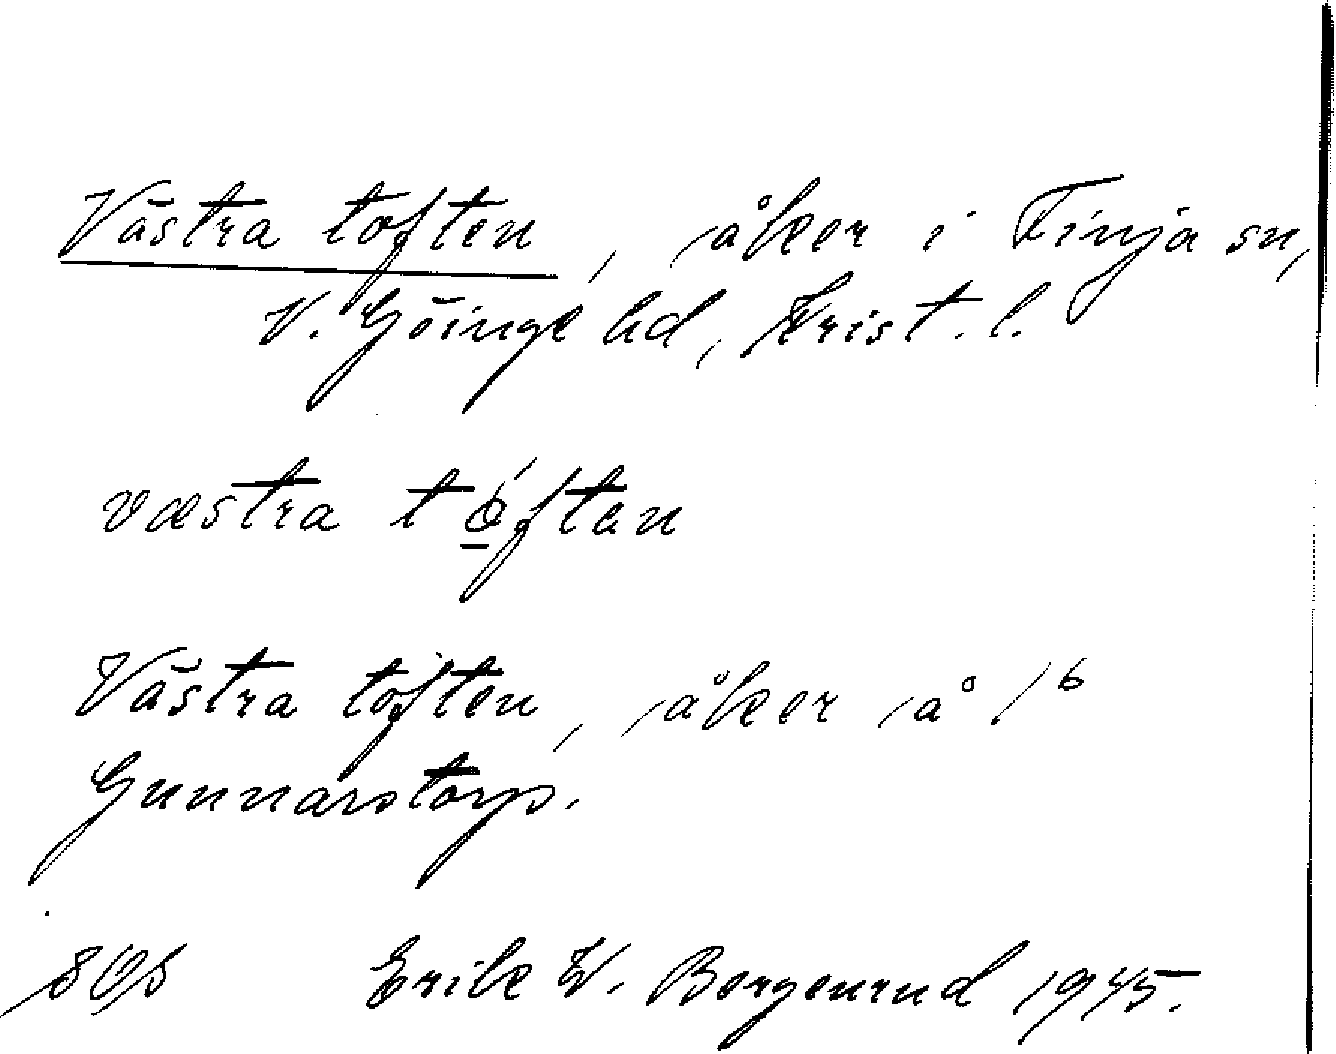 Västra toften, åker i Finja sn,
V. Göinge hd, Krist. l.
væstra tó̱ftan
Västra toften, åker å 1⁶
Gunnarstorp.
Erik W. Bergenrud 1945.